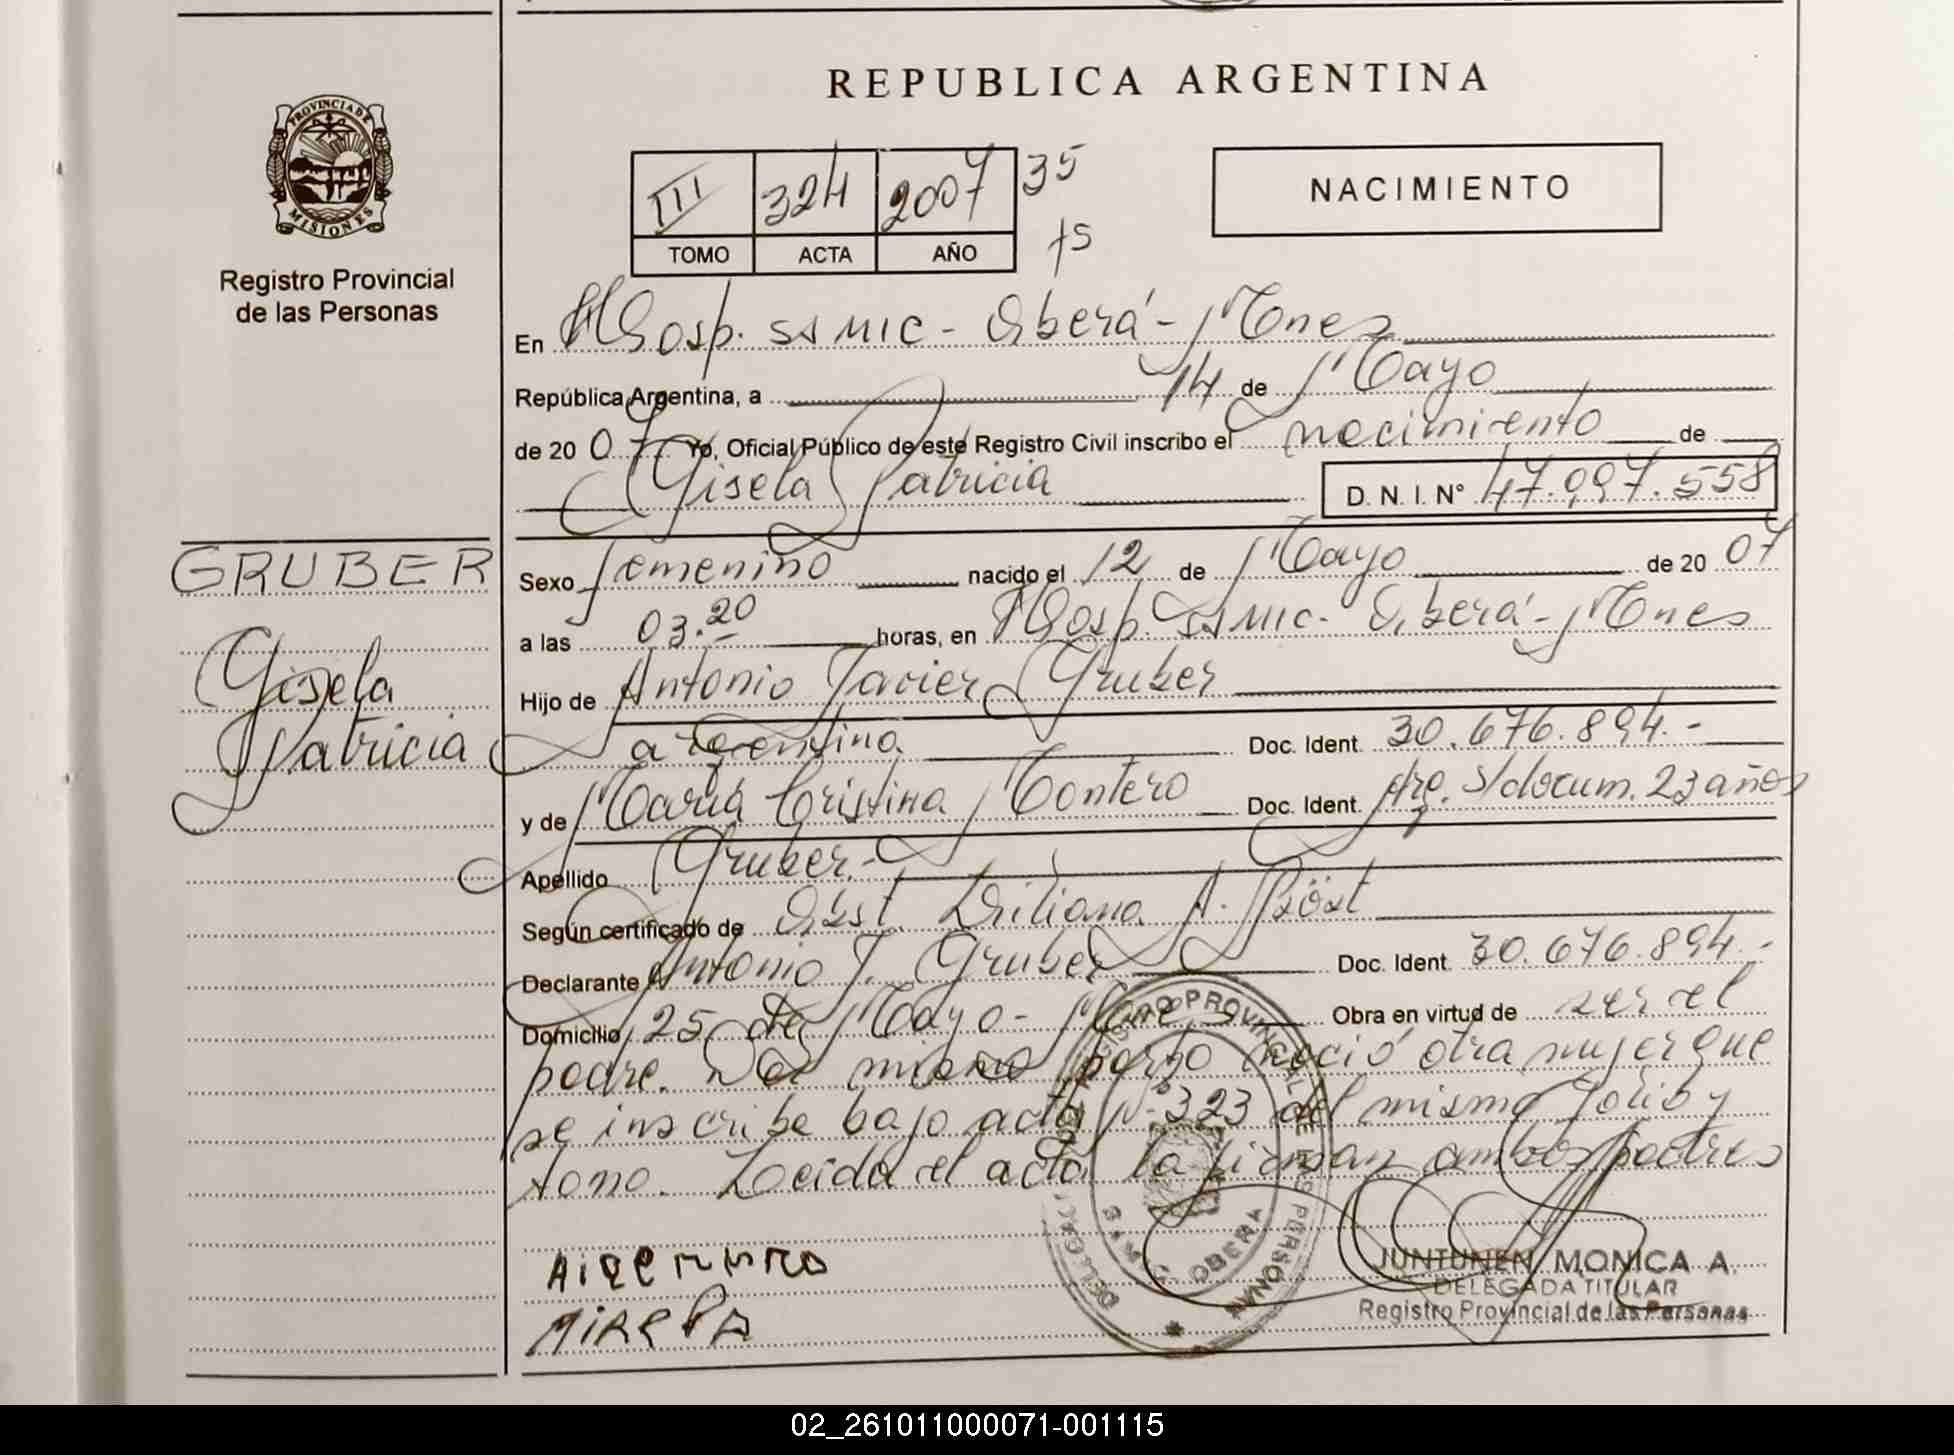 REPUBLICA ARGENTINA
PROVINCIA DE
MISIONES
Registro Provincial
de las Personas
III 324 2007 35
TOMO ACTA AÑO
NACIMIENTO
En Hosp. SAMIC - Oberá - Mones
República Argentina, a 14 de Mayo
de 20 07 Yo, Oficial Público de este Registro Civil inscribo el nacimiento de
Gisela Patricia D. N. I. N° 47.997.558
GRUBER
Gisela
Patricia
Sexo femenino nacido el 12 de Mayo de 20 07
a las 03.20 horas, en Hosp. SAMIC - Oberá - Mones
Hijo de Antonio Javier Gruber
argentino Doc. Ident. 30.676.894.-
y de María Cristina Montero Doc. Ident. arg. s/docum. 23 años
Apellido Gruber.-
Según certificado de Obst. A. Röst
Declarante Antonio J. Gruber Doc. Ident. 30.676.894.-
Domicilio 25 de Mayo - Obra en virtud de ser el
padre. Del mismo parto nació otra mujer que
se inscribe bajo acta N° 323 del mismo folio y
tomo. Leída el acta la firman ambos padres
REGISTRO PROVINCIAL DE LAS PERSONAS
OBERA
JUNTUNEN MONICA A.
DELEGADA TITULAR
Registro Provincial de las Personas
02_261011000071-001115